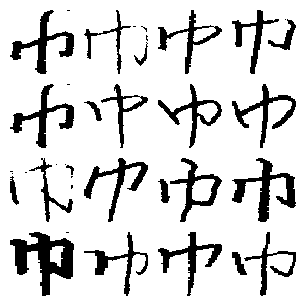 巾巾巾巾
巾巾巾巾
巾巾巾巾
巾巾巾巾